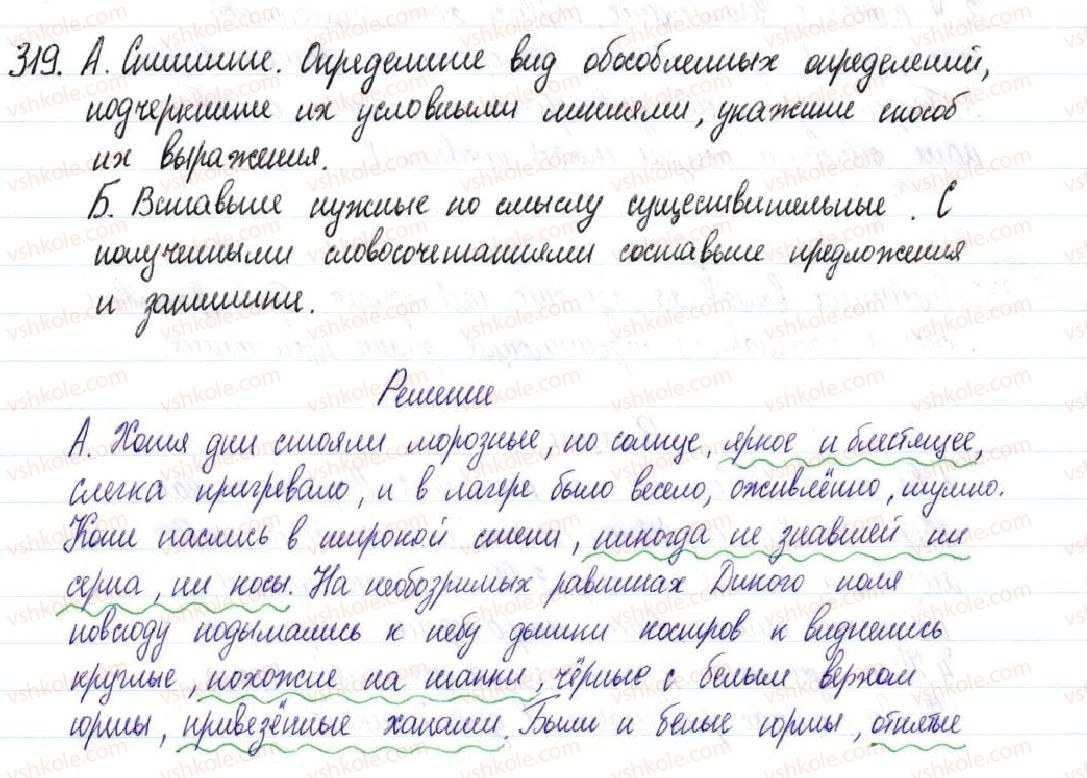 319. А. Спишите. Определите вид обособленных определений,
подчеркните их условными линиями, укажите способ
их выражения.
Б. Вставьте нужные по смыслу существительные. С
полученными словосочетаниями составьте предложения
и запишите.
Решение
А. Хотя дни стояли морозные, но солнце, яркое и блестящее,
слегка пригревало, и в лагере было весело, оживлённо, шумно.
Кони паслись в широкой степи, никогда не знавшей ни
серпа, ни косы. На необозримых равнинах Дикого поля
повсюду подымались к небу дымки костров к виднелись
круглые, похожие на шапки, чёрные с белым верхом
юрты, привезённые ханами. Были и белые юрты, отнятые